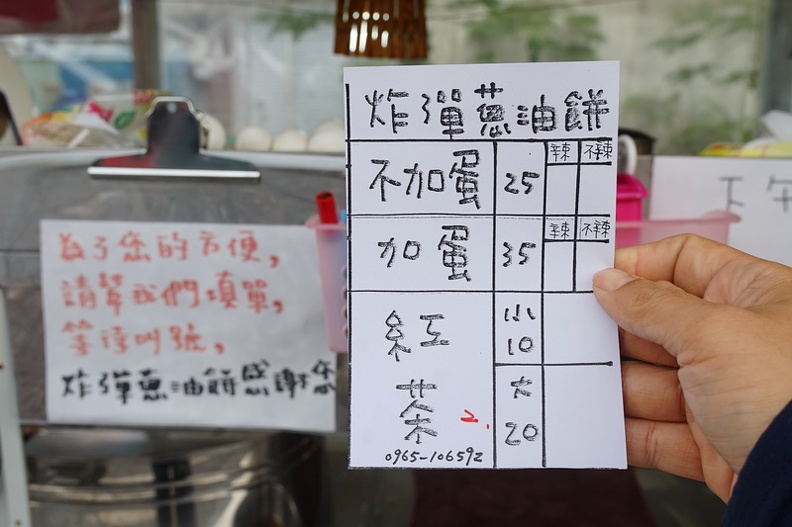 炸彈蔥油餅
不加蛋 25 辣 不辣
加蛋 35 辣 不辣
紅茶 小 10
大 20
2.
0965-106592
為了您的方便,
請幫我們填單,
等待叫號,
炸彈蔥油餅感謝您
下午